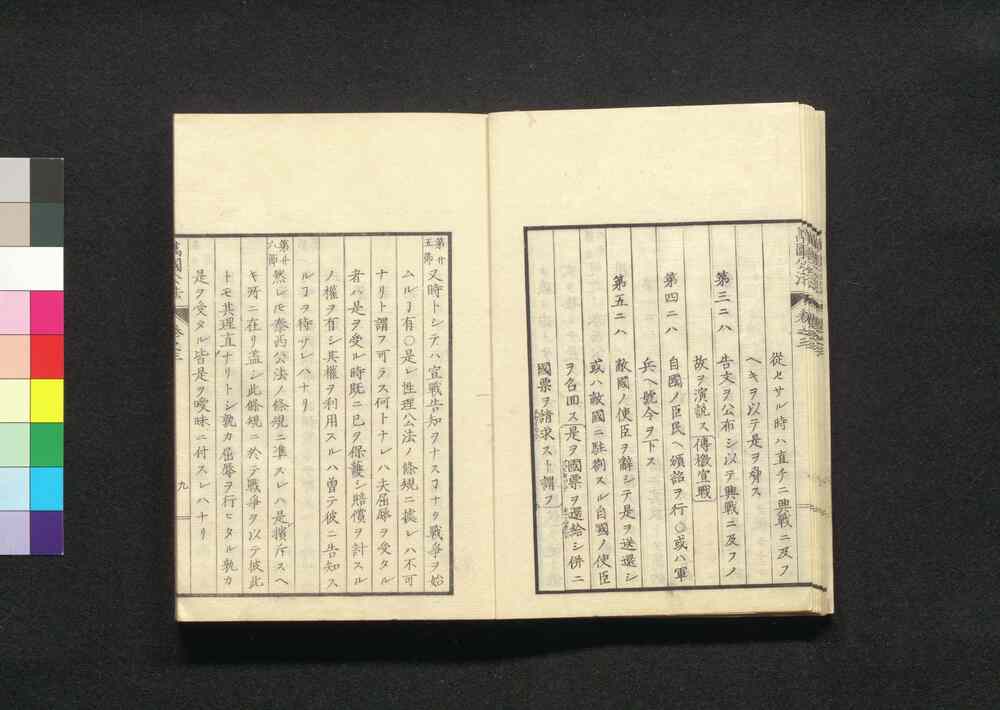 從セサル時ハ直チニ興戰ニ及フ
ヘキヲ以テ是ヲ脅ス
第三ニハ 告文ヲ公布シ以テ興戰ニ及フノ
故ヲ演說ス傳檄宣戰
第四ニハ 自國ノ臣民ヘ頒詔ヲ行○或ハ軍
兵ヘ號令ヲ下ス
第五ニハ 敵國ノ使臣ヲ辭シテ是ヲ送還シ
或ハ敵國ニ駐劄スル自國ノ使臣
ヲ名回ス是ヲ國票ヲ還給シ併ニ
國票ヲ請求スト謂フ
第廿五節 又時トシテハ宣戰告知ヲナスヿナク戰爭ヲ始
ムルヿ有○是レ性理公法ノ條規ニ據レハ不可
ナリト謂フ可ラス何トナレハ夫屈辱ヲ受タル
者ハ是ヲ受ル時既ニ已ヲ保護シ賠償ヲ討スル
ノ權ヲ有シ其權ヲ利用スルハ曽テ彼ニ告知ス
ルヿヲ待ザレハナリ
第廿六節 然レ𪜈泰西公法ノ條規ニ準スレハ是擯斥スヘ
キ所ニ在リ蓋シ此條規ニ於テ戰爭ヲ以テ彼此
トモ其理直ナリトシ孰カ屈辱ヲ行ヒタル孰カ
是ヲ受タル皆是ヲ曖昧ニ付スレハナリ
九